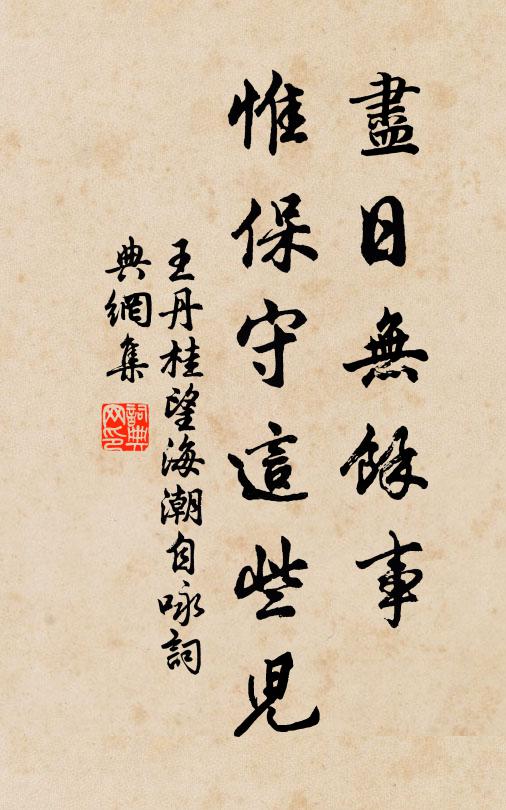 盡日無餘事
惟保守這些兒
王丹桂望海潮自咏詞
典網集
詞典
网印